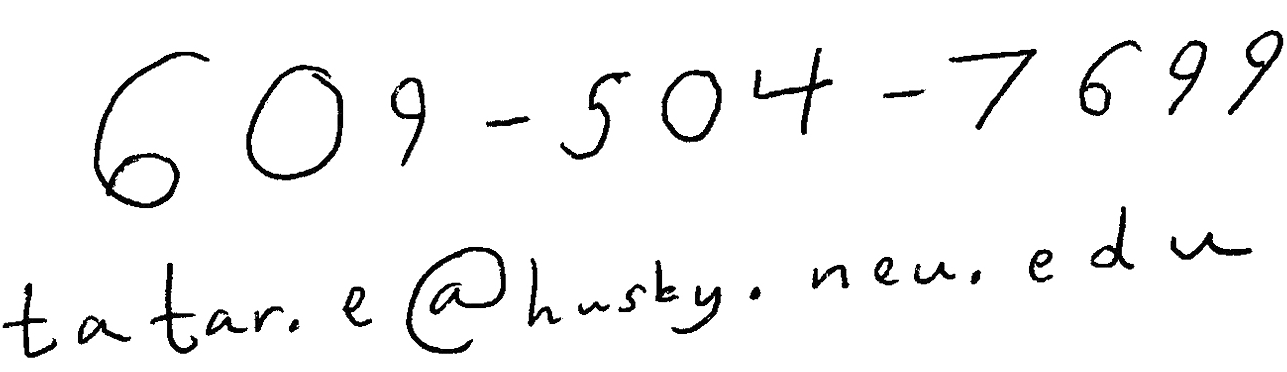 609-504-7699
tatar.e@husky.neu.edu